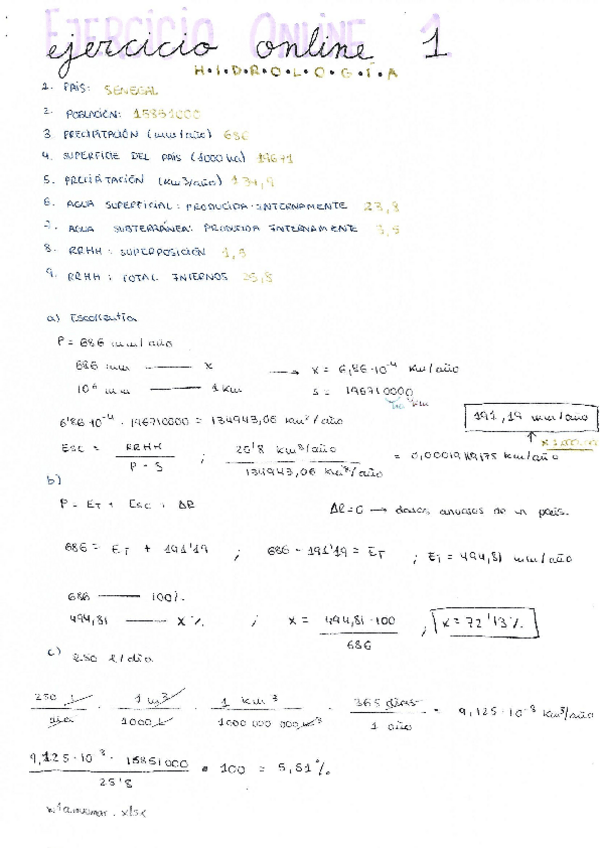 EJERCICIO ONLINE 1
ejercicio online 1
H·I·D·R·O·L·O·G·Í·A
1. PAÍS: SENEGAL
2. POBLACIÓN: 15851000
3. PRECIPITACIÓN (mm/año) 686
4. SUPERFICIE DEL PAÍS (1000 ha) 19671
5. PRECIPITACIÓN (Km3/año) 134,9
6. AGUA SUPERFICIAL: PRODUCIDA INTERNAMENTE 23,8
7. AGUA SUBTERRÁNEA: PRODUCIDA INTERNAMENTE 3,5
8. RRHH: SUPERPOSICIÓN 1,5
9. RRHH: TOTAL INTERNOS 25,8
a) Escorrentía
P = 686 mm/año
686 mm —— X → X = 6,86·10⁻⁴ Km/año
10⁶ mm —— 1 Km S = 196710000
6'86·10⁻⁴ · 196710000 = 134943,06 Km³/año
191,19 mm/año
Esc = RRHH / P·S ; 25'8 Km³/año / 134943,06 Km³/año = Km/año
b)
P = ET + Esc + ΔR ΔR=0 → datos anuales de un país.
686 = ET + 191'19 ; 686 - 191'19 = ET ; ET = 494,81 mm/año
686 —— 100%
494,81 —— X% ; X = 494,81·100 / 686 ; X = 72'13%
c) 250 l/día
250 l / día · 1 m3 / 1000 l · 1 Km3 / 1000 000 000 m3 · 365 días / 1 año = 9,125·10⁻⁸ Km3/año
9,125·10⁻⁸ · 15851000 / 25'8 · 100 = 5,61%